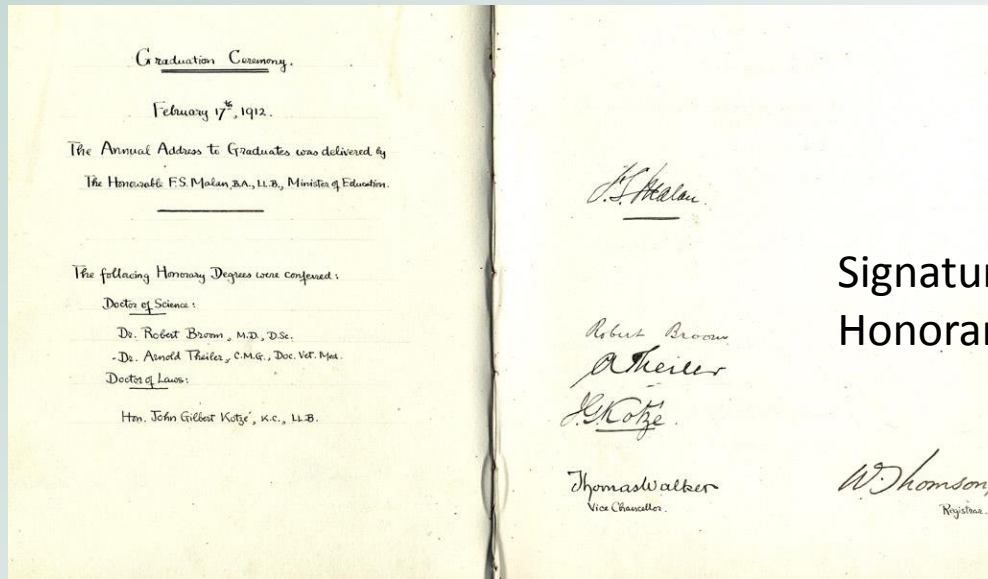 Graduation Ceremony.
February 17th, 1912.
The Annual Address to Graduates was delivered by
The Honourable F.S. Malan, B.A., LL.B., Minister of Education.
The following Honorary Degrees were conferred:
Doctor of Science:
Dr. Robert Broom, M.D., D.Sc.
Dr. Arnold Theiler, C.M.G., Doc. Vet. Med.
Doctor of Laws:
Hon. John Gilbert Kotzé, K.C., LL.B.
F.S. Malan.
Signatur
Honorar
Robert Broom
A Theiler
J.G. Kotzé.
Thomas Walker
Vice Chancellor.
W. Thomson,
Registrar.